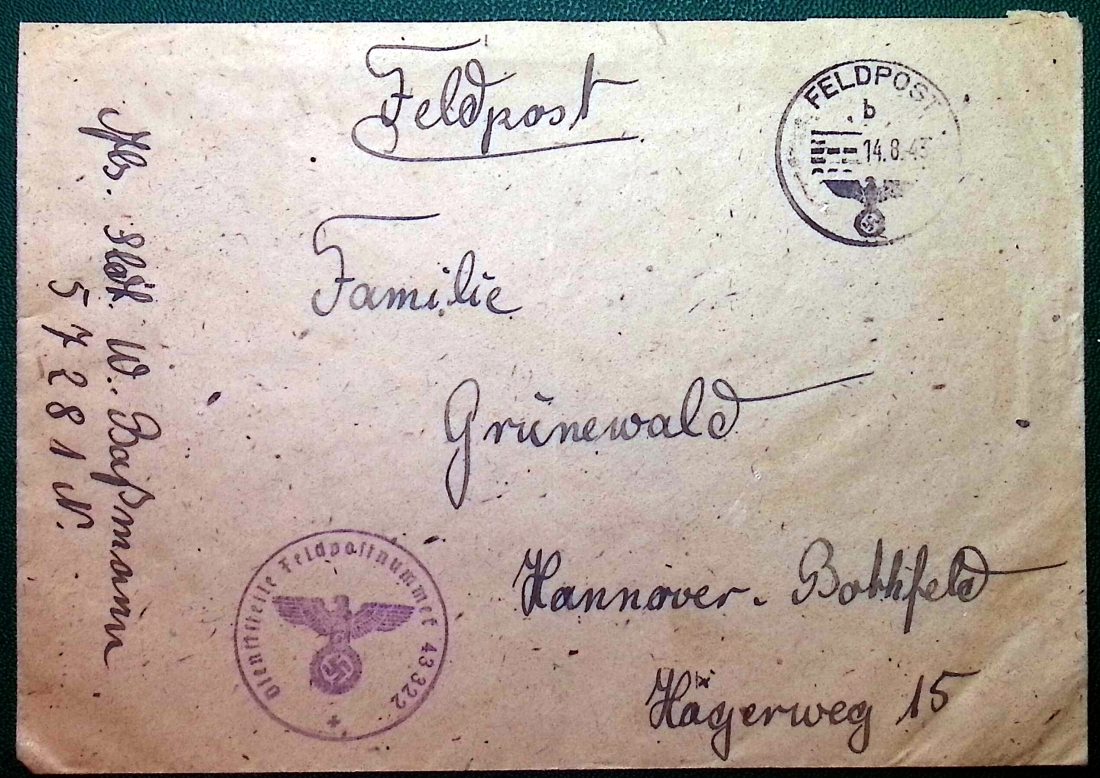 Feldpost
FELDPOST
b
14.8.43
Familie
Grünewald
Hannover-Bothfeld
Hägerweg 15
Abs. W. Baßmann
57281 N.
Dienststelle Feldpostnummer 43322